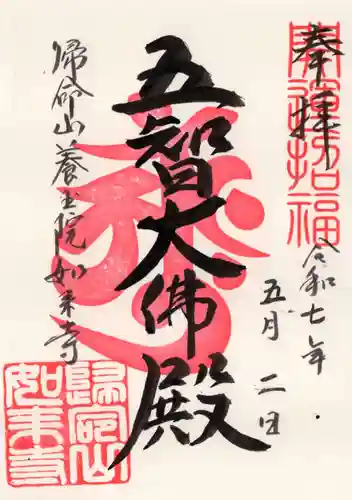 奉拝
開運招福
令和七年
五月二日
五智大佛殿
帰命山養玉院如来寺
歸命山
如来寺